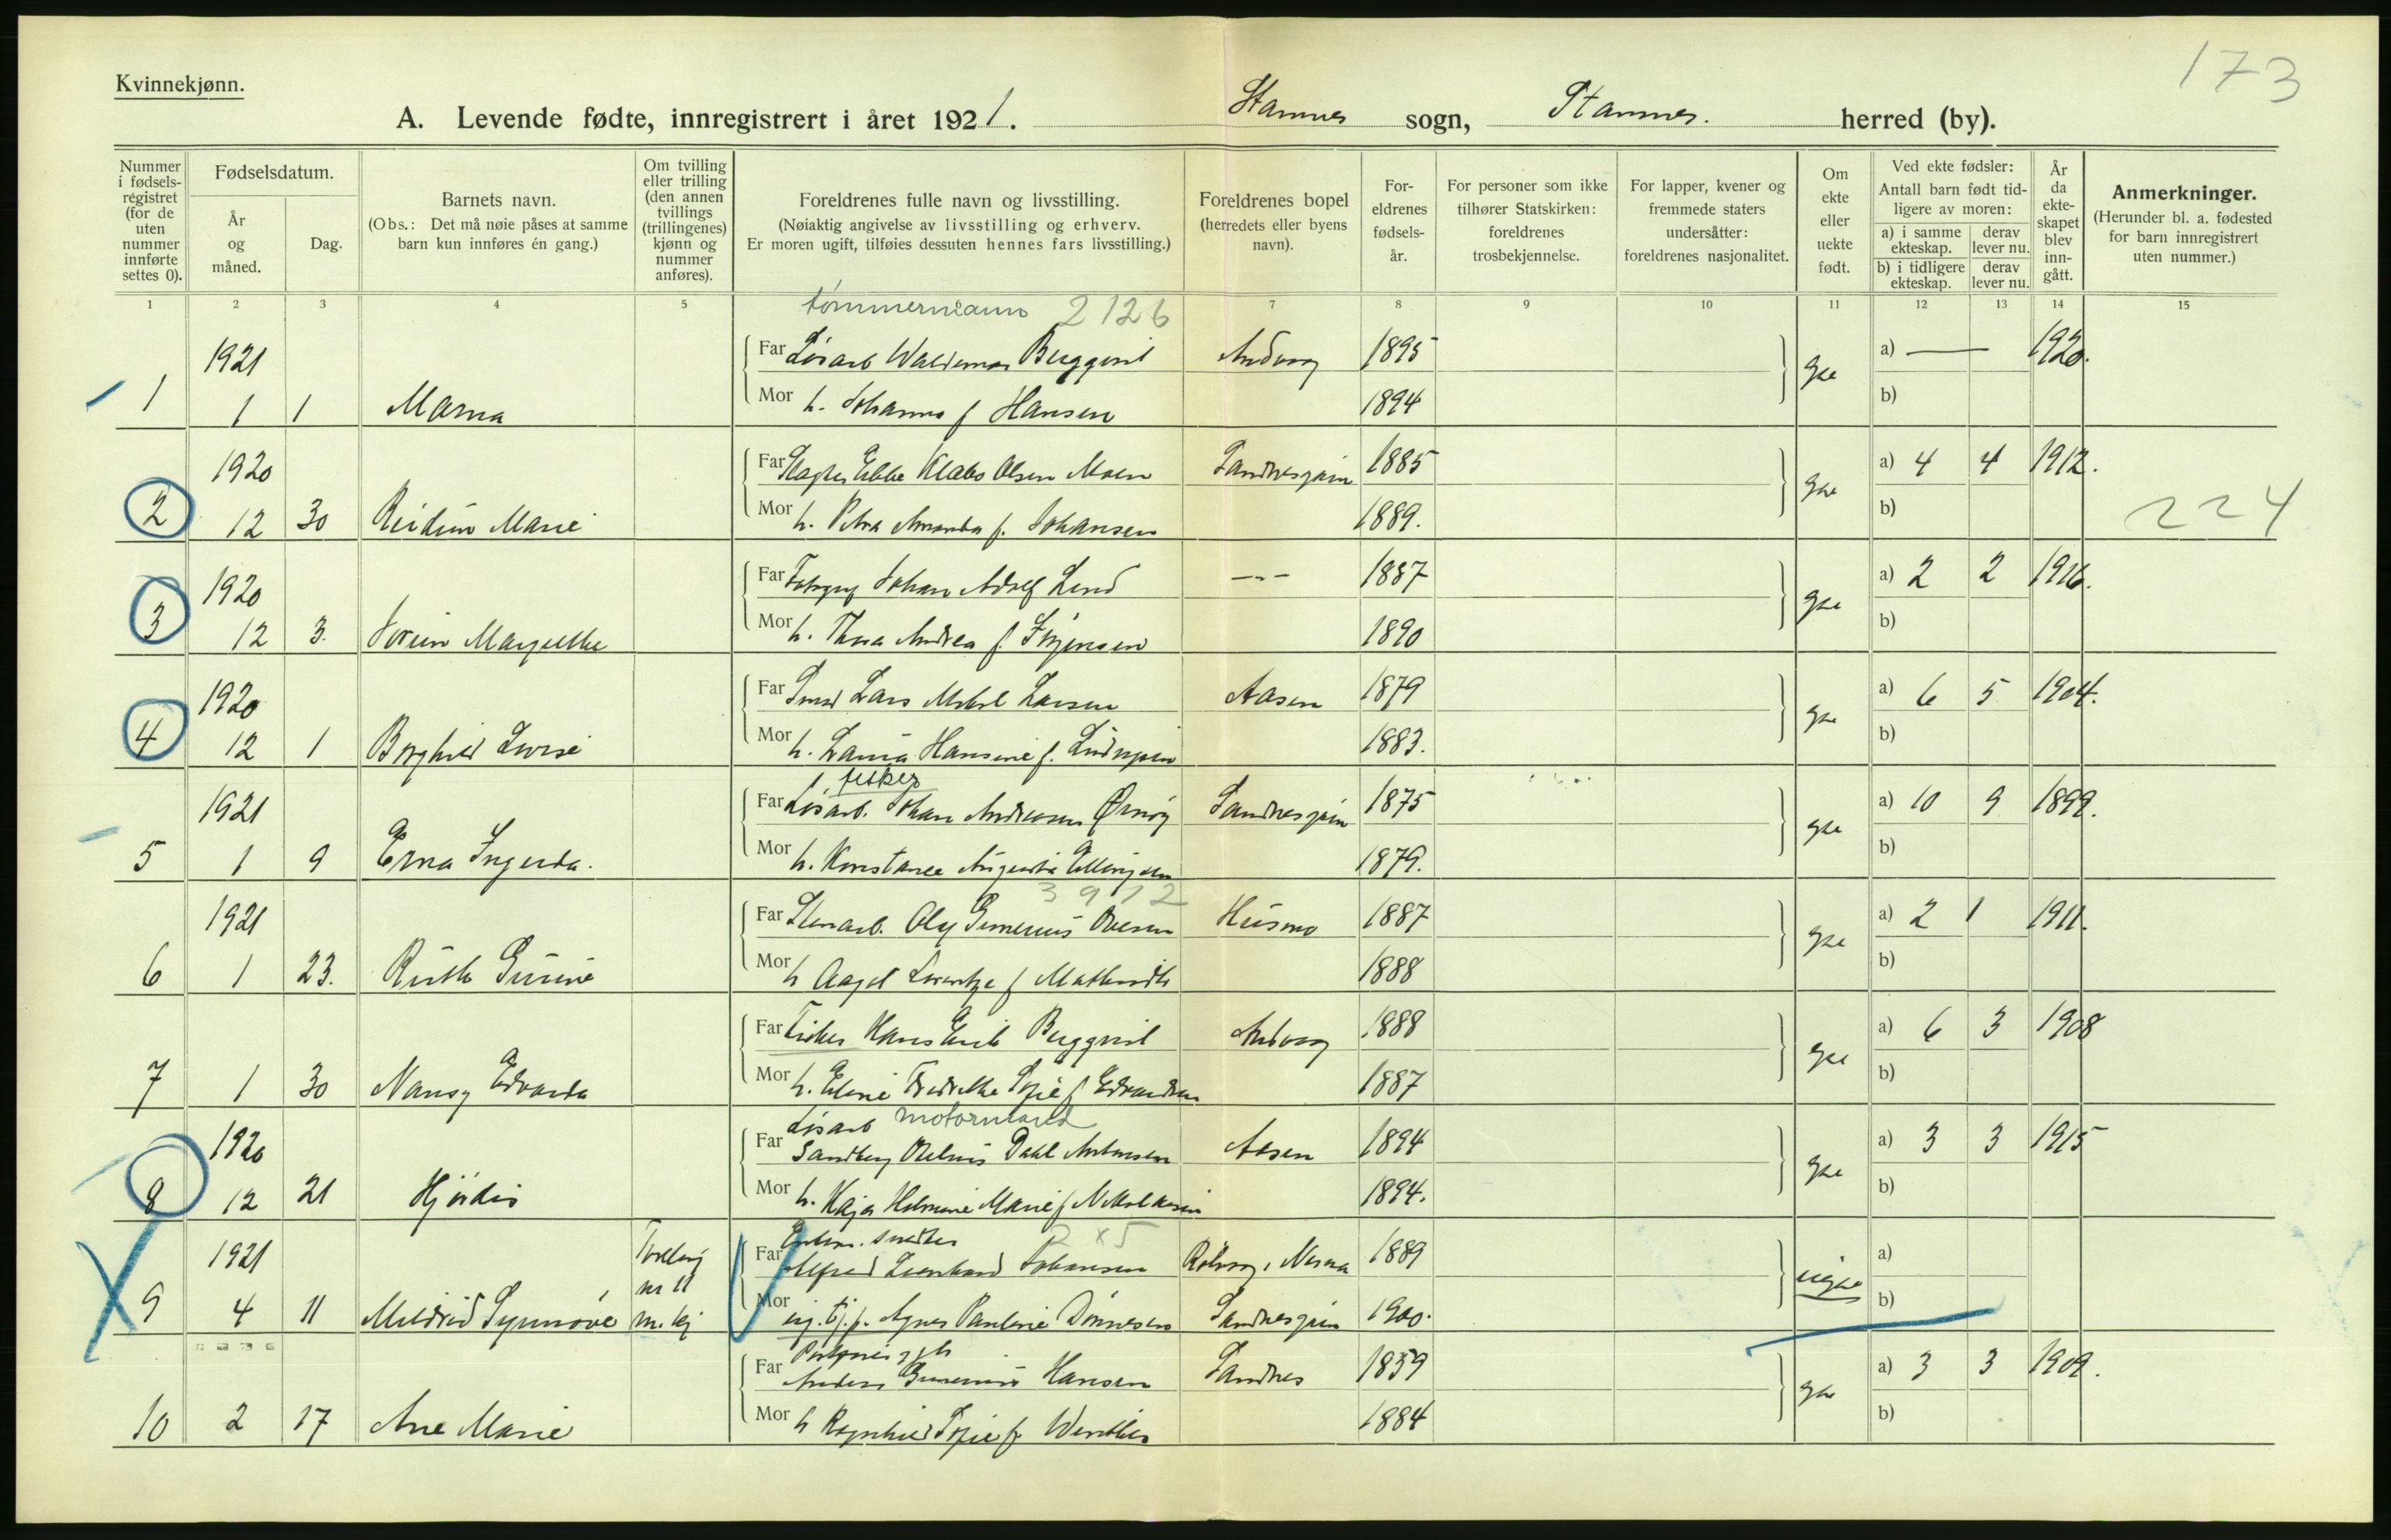 173
Kvinnekjønn.
A. Levende fødte, innregistrert i året 1921. Stamnes sogn, Stamnes. herred (by).
Nummer i fødselsregistret (for de uten nummer innførte settes 0).
Fødselsdatum.
År og måned.
Dag.
Barnets navn.
(Obs.: Det må nøie påses at samme barn kun innføres én gang.)
Om tvilling eller trilling (den annen tvillings (trillingenes) kjønn og nummer anføres).
Foreldrenes fulle navn og livsstilling.
(Nøiaktig angivelse av livsstilling og erhverv. Er moren ugift, tilføies dessuten hennes fars livsstilling.)
Foreldrenes bopel (herredets eller byens navn).
Foreldrenes fødselsår.
For personer som ikke tilhører Statskirken: foreldrenes trosbekjennelse.
For lapper, kvener og fremmede staters undersåtter: foreldrenes nasjonalitet.
Om ekte eller uekte født.
Ved ekte fødsler:
Antall barn født tidligere av moren:
a) i samme ekteskap.
derav lever nu.
b) i tidligere ekteskap.
derav lever nu.
År da ekteskapet blev inngått.
Anmerkninger.
(Herunder bl. a. fødested for barn innregistrert uten nummer.)
1 2 3 4 5 7 8 9 10 11 12 13 14 15
tømmermann 2126
1921 Far Løsarb Waldemar Bergqvist 1895 a) — 1920.
1 1 1 Marna Mor h. Johanna f Hansen 1894 b)
1920 Far Ebbe Klabo Olsen Moen Sandnessjøen 1885 a) 4 4 1912.
2 12 30 Reidun Marie Mor h. Petra Amanda f. Johansen 1889. b)
224
1920 Far Johan Adolf Lund -"- 1887 a) 2 2 1916.
3 12 3. Margrethe Mor h. Thea Andrea f. Jörgensen 1890 b)
1920 Far Smed Lars Mikal Larsen Aasen 1879 a) 6 5 1904.
4 12 1 Borghild Lovise Mor h. Laura Hansine f. 1883. b)
fisker
1921 Far Løsarb. Johan Andreasen Ørnøy Sandnessjøen 1875 a) 10 9 1899.
5 1 9 Erna Ingerda. Mor h. Konstance Augusta Ellingsen 1879. b)
3912
1921 Far Stenarb. Olaf Olsen Husmo 1887 a) 2 1 1911.
6 1 23. Ruth Mor h Aagot Lorentze f 1888 b)
Far Fisker Hans Bergqvist 1888 a) 6 3 1908
7 1 30 Nansy Edvarda Mor h. Eline Fredrikke Sofie f Edvardsen 1887 b)
Løsarb motormand
1920 Far Sandberg Dahl Antonsen Aasen 1894 a) 3 3 1915
8 12 21 Hjördis Mor h. Kaja Marie f Nikolaisen 1894. b)
2 x 5
1921 Tvilling Far Alfred Leonhard Johansen Nesna 1889 uegte a)
nr 11
9 4 11 Mildrid Synnøve m.kj Mor Agnes Pauline Dönnesen Sandnessjøen 1900. b)
Far Anders Hansen Sandnes 1859 a) 3 3 1909.
10 2 17 Ane Marie Mor h Ragnhild Sofie f 1884 b)